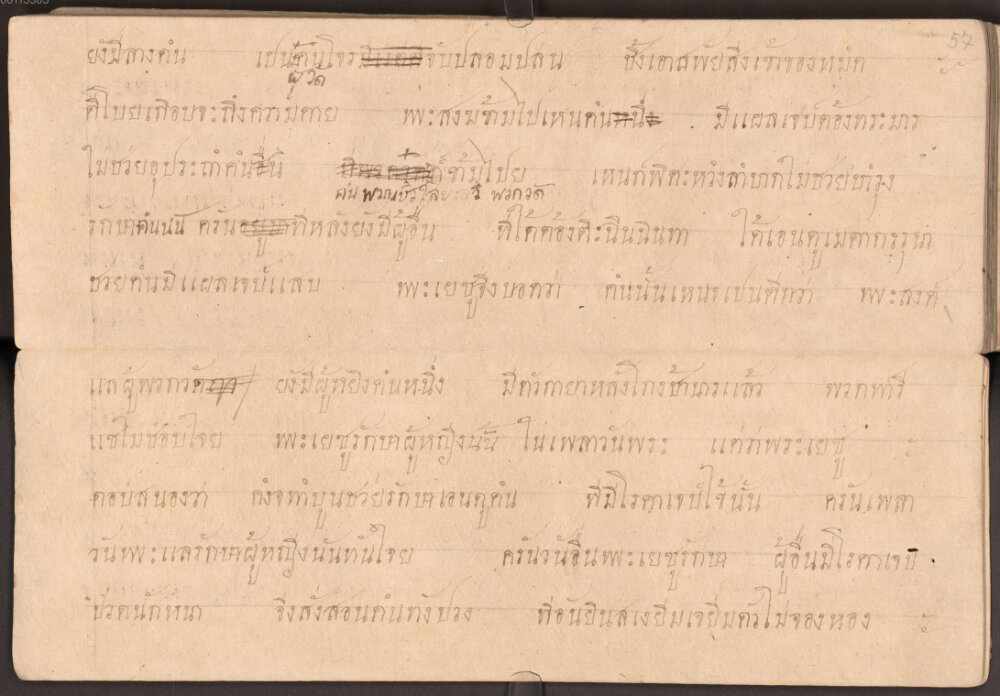 57
ยังมีลางคํน เปนคํนโจร จับปลอมปลน ชึ้งเอาสพัยสิ่งเข้าของหมํด
ผู้วัด
พพะสงฆข้ามไปเหนคํน นี้ มีแผลเจบ์ต้องทรํะมาร
ไมช่วยอุประถำคํนอื่น ก็ข้ามไปย เหนก์พิศะหวังลำบากไมช่วยบำรุง
คํน พวกวัด
รักษาคํนนั้น ครั้น ทีหลังยังมีผู้อื่น ที่ได้ต้องติะฉินนินทา ได้เอนดูเมตากรรุนา
ช่วยคํนมีแผลเจบ์แสบ พพะเยซูจึ่งบอกว่า คํนนั้นเหนจะเปนดีกว่า พพะสงค์
แลผู้พวกวัด ยังมีผู้หยิงคํนหนึ่ง มีตัวกายาหลังโกงช้านารแล้ว พวกพารี
แซ่ไม่ชอบไจย พพะเยซูรักษาผู้หญีงนั้น ในเพลาวันพระ แต่ว่าพระเยซู
ตอบสนองว่า คํงจทำบูนช่วยรักษาเอนดูคํน ที่มีโรคาเจบ์ไข้นั้น ครั้นเพลา
วันพพะแลรักษาผู้หญีงนั้นทันไจย ครั้นวันอื่นพพะเยซูรักษา ผู้อื่นมีโรคาเจบ์
ปวดนักหนา จึ่งสั่งสอนคํนทังปวง ที่อันยินสเงยีมเจยีมตัวไม่จองหอง